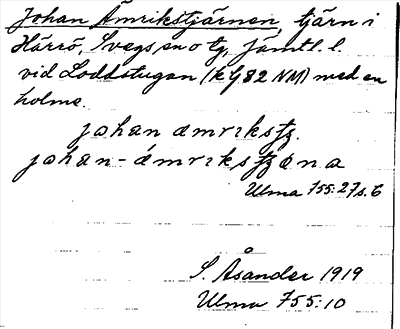 Johan Ämrikstjärnen tjärn i
Härrö, Svegs sn o tg, Jämtl. l.
vid Loddstugan (k G82 NM) med en
holme.
johan ämrikstz.
johan-ämrikstzóna
Ulma 755:27 s. 6
S. Åsander 1919
Ulma 755:10